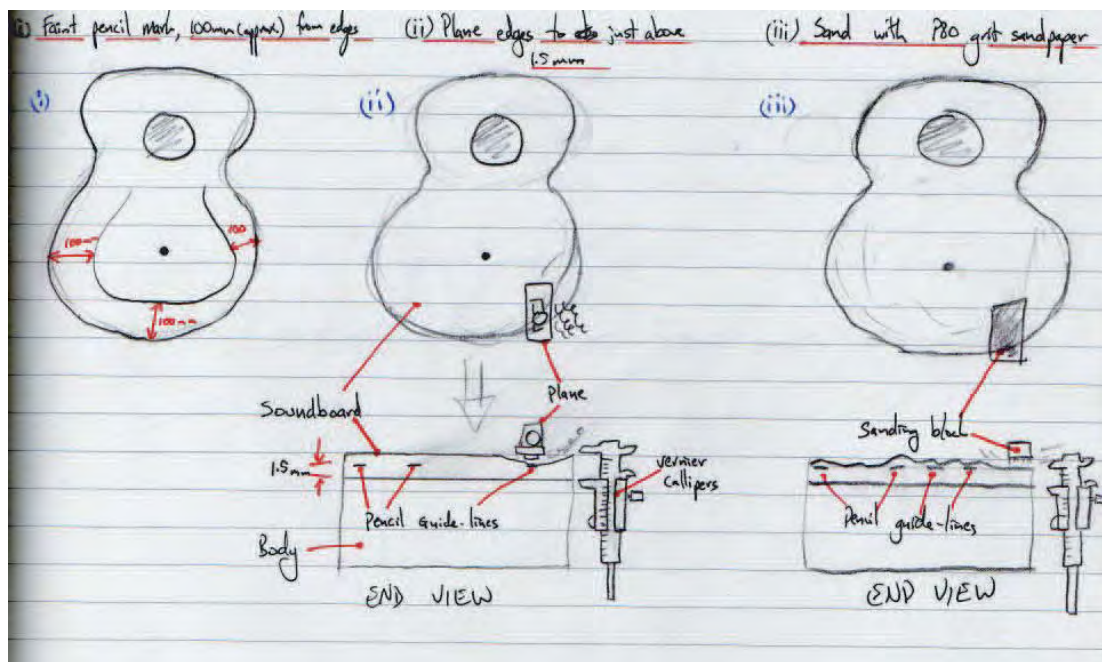 (i) Faint pencil mark, 100mm (approx.) from edges
(ii) Plane edges to just above
1.5mm
(iii) Sand with P80 grit sandpaper
(i)
(ii)
(iii)
100mm
100
100mm
Soundboard
Plane
Sanding block
1.5mm
Vernier
Callipers
Pencil Guide-lines
Body
END VIEW
Pencil guide-lines
END VIEW